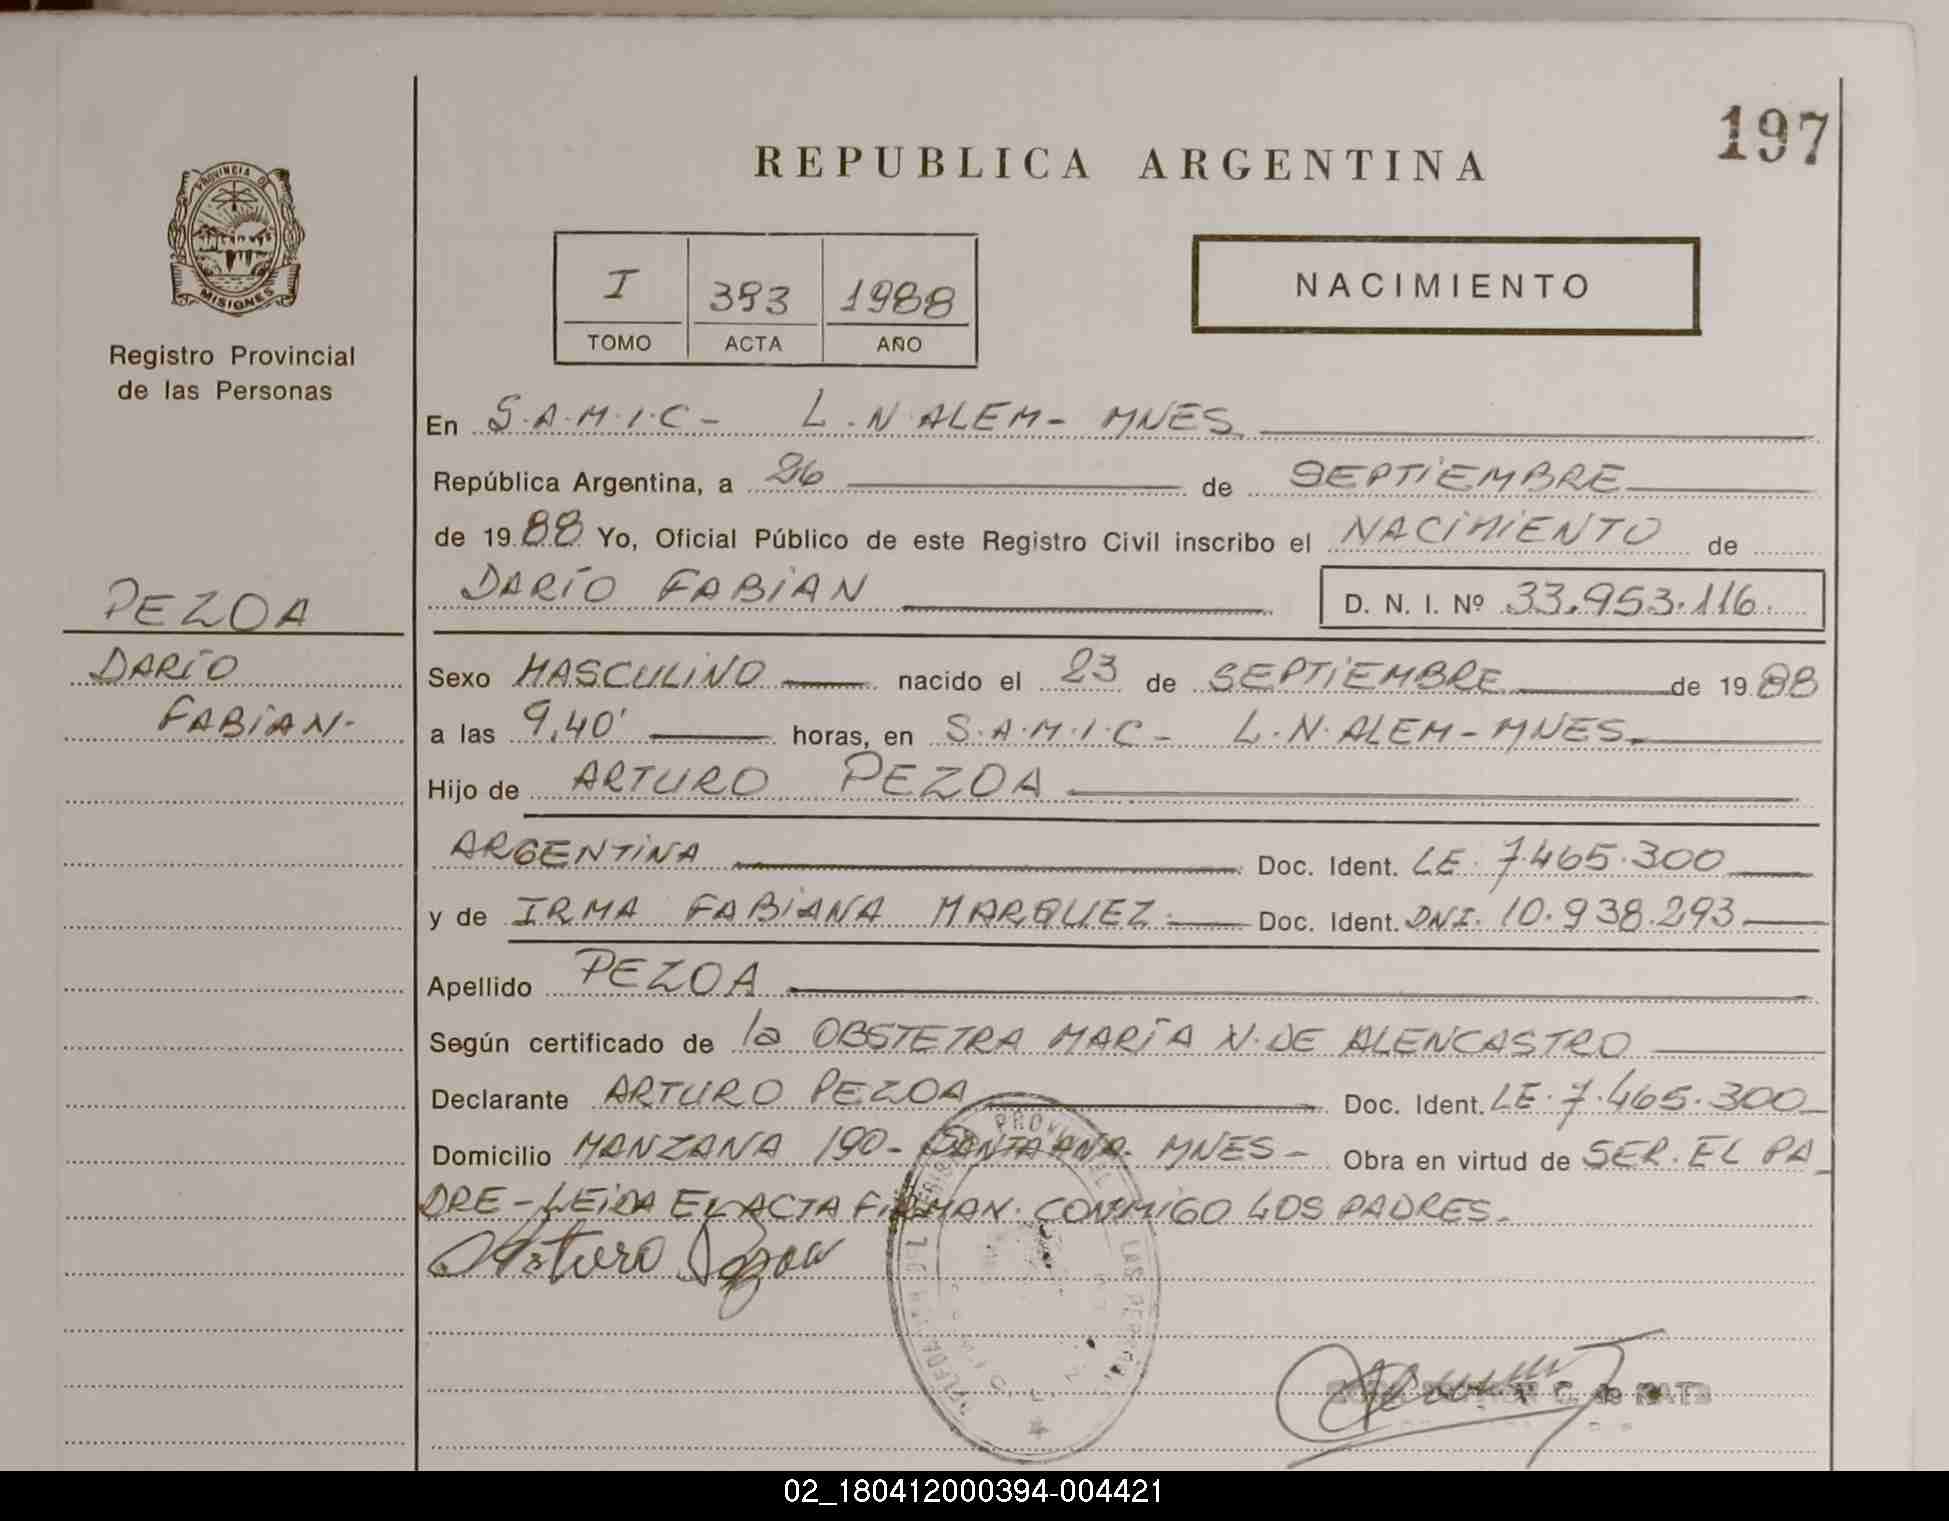 197
REPUBLICA ARGENTINA
PROVINCIA DE
MISIONES
Registro Provincial
de las Personas
I 393 1988
TOMO ACTA AÑO
NACIMIENTO
En S.A.M.I.C - L.N. ALEM - MNES.
República Argentina, a 26 de SEPTIEMBRE
de 1988 Yo, Oficial Público de este Registro Civil inscribo el NACIMIENTO de
DARÍO FABIAN D. N. I. Nº 33.953.116
PEZOA
DARÍO
FABIAN.
Sexo MASCULINO nacido el 23 de SEPTIEMBRE de 1988
a las 9,40' horas, en S.A.M.I.C - L.N. ALEM - MNES.
Hijo de ARTURO PEZOA
ARGENTINA Doc. Ident. LE. 7.465.300
y de IRMA FABIANA MARQUEZ. Doc. Ident. DNI. 10.938.293
Apellido PEZOA
Según certificado de la OBSTETRA MARÍA N. DE ALENCASTRO
Declarante ARTURO PEZOA Doc. Ident. LE. 7.465.300
Domicilio MANZANA 190 - SANTA ANA. MNES - Obra en virtud de SER. EL PA_
DRE - LEIDA EL ACTA FIRMAN. CONMIGO LOS PADRES.
Arturo Pezoa
PROVINCIAL LAS
C. de KATZ
02_180412000394-004421